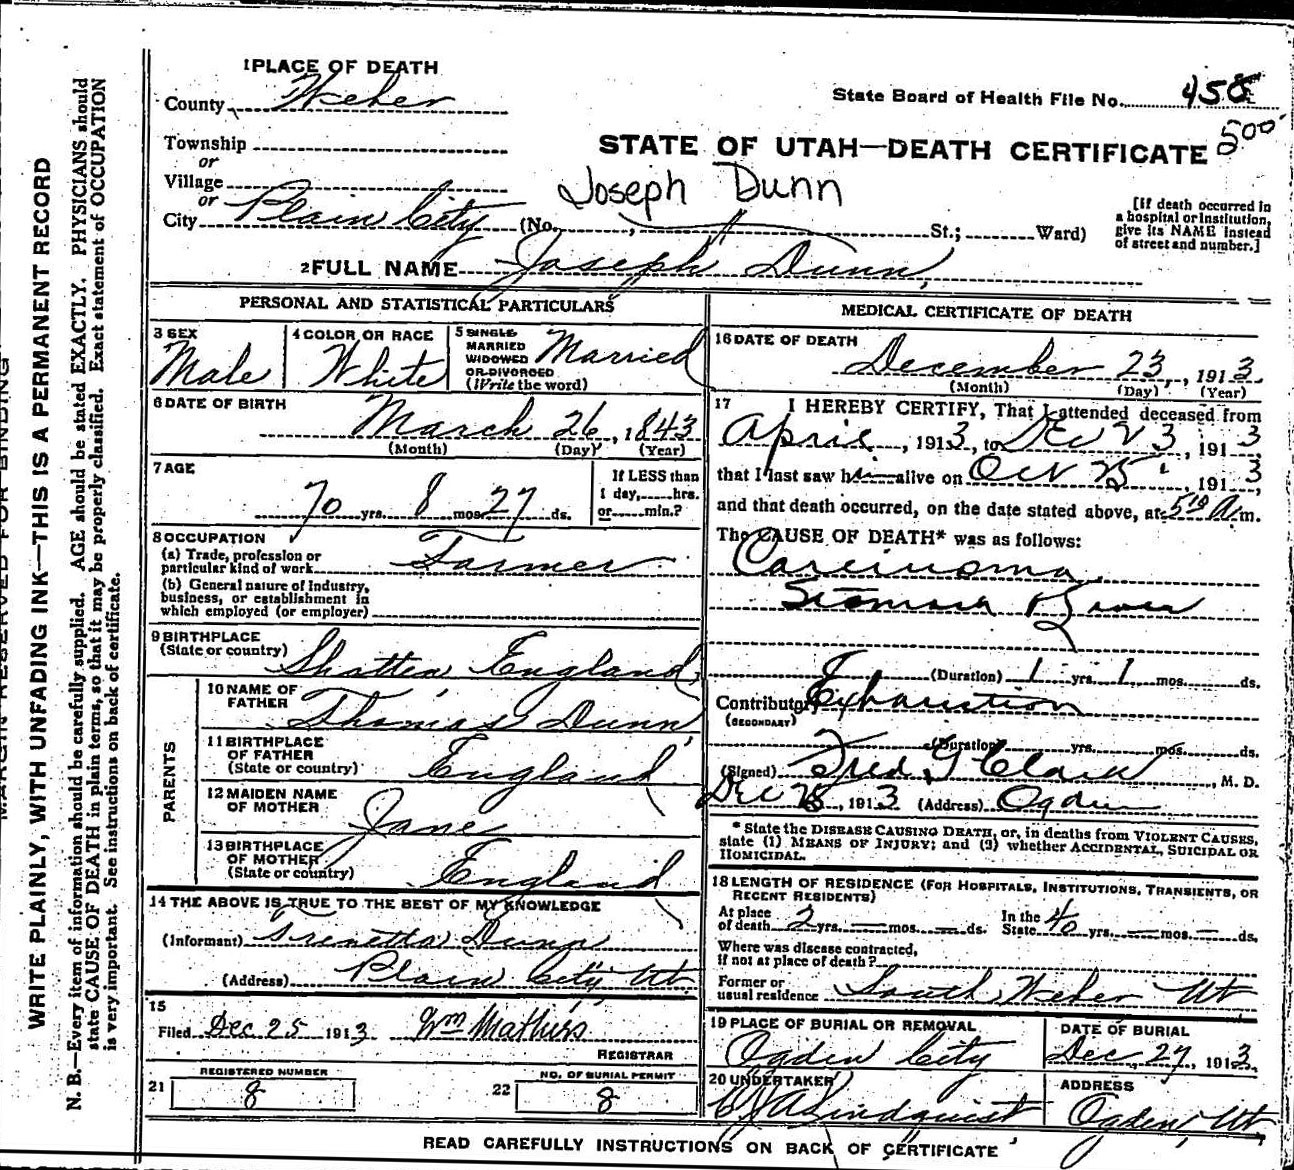 1 PLACE OF DEATH
County Weber
State Board of Health File No. 458
500
STATE OF UTAH—DEATH CERTIFICATE
Township
or
Village
or
Joseph Dunn
City Plain City (No. , St.; Ward)
[If death occurred in a hospital or institution, give its NAME instead of street and number.]
2 FULL NAME Joseph Dunn,
PERSONAL AND STATISTICAL PARTICULARS
3 SEX
Male
4 COLOR OR RACE
White
5 SINGLE
MARRIED
WIDOWED
OR DIVORCED
(Write the word)
Married
6 DATE OF BIRTH
March 26, 1843
(Month) (Day) (Year)
7 AGE
70 yrs. 8 mos. 27 ds.
If LESS than
1 day, hrs.
or min.?
8 OCCUPATION
(a) Trade, profession or
particular kind of work Farmer
(b) General nature of Industry,
business, or establishment in
which employed (or employer)
9 BIRTHPLACE
(State or country) England
PARENTS
10 NAME OF
FATHER Thomas Dunn
11 BIRTHPLACE
OF FATHER
(State or country) England
12 MAIDEN NAME
OF MOTHER Jane
13 BIRTHPLACE
OF MOTHER
(State or country) England
14 THE ABOVE IS TRUE TO THE BEST OF MY KNOWLEDGE
(Informant) Dunn
(Address) Plain City Ut
15
Filed Dec 25 1913 Wm
REGISTRAR
21 REGISTERED NUMBER
8
22 NO. OF BURIAL PERMIT
8
MEDICAL CERTIFICATE OF DEATH
16 DATE OF DEATH
December 23, 1913
(Month) (Day) (Year)
17 I HEREBY CERTIFY, That I attended deceased from
April, 1913, to Dec 23, 1913
that I last saw him alive on Oct 25, 1913,
and that death occurred, on the date stated above, at 5 10 A m.
The CAUSE OF DEATH* was as follows:
Carcinoma
Stomach & Liver
(Duration) 1 yrs. 1 mos. ds.
Contributory Exhaustion
(SECONDARY)
(Duration) yrs. mos. ds.
(Signed) Fred , M. D.
Dec , 1913 (Address) Ogden
* State the DISEASE CAUSING DEATH, or, in deaths from VIOLENT CAUSES,
state (1) MEANS OF INJURY; and (2) whether ACCIDENTAL, SUICIDAL OR
HOMICIDAL.
18 LENGTH OF RESIDENCE (FOR HOSPITALS, INSTITUTIONS, TRANSIENTS, OR
RECENT RESIDENTS)
At place
of death 2 yrs. — mos. — ds.
In the
State 40 yrs. — mos. — ds.
Where was disease contracted,
if not at place of death?
Former or
usual residence South Weber Ut
19 PLACE OF BURIAL OR REMOVAL
Ogden City
DATE OF BURIAL
Dec 27, 1913
20 UNDERTAKER
Lindquist
ADDRESS
Ogden, Ut
READ CAREFULLY INSTRUCTIONS ON BACK OF CERTIFICATE
MARGIN RESERVED FOR BINDING
WRITE PLAINLY, WITH UNFADING INK—THIS IS A PERMANENT RECORD
N. B.—Every item of information should be carefully supplied. AGE should be stated EXACTLY. PHYSICIANS should
state CAUSE OF DEATH in plain terms, so that it may be properly classified. Exact statement of OCCUPATION
is very important. See instructions on back of certificate.